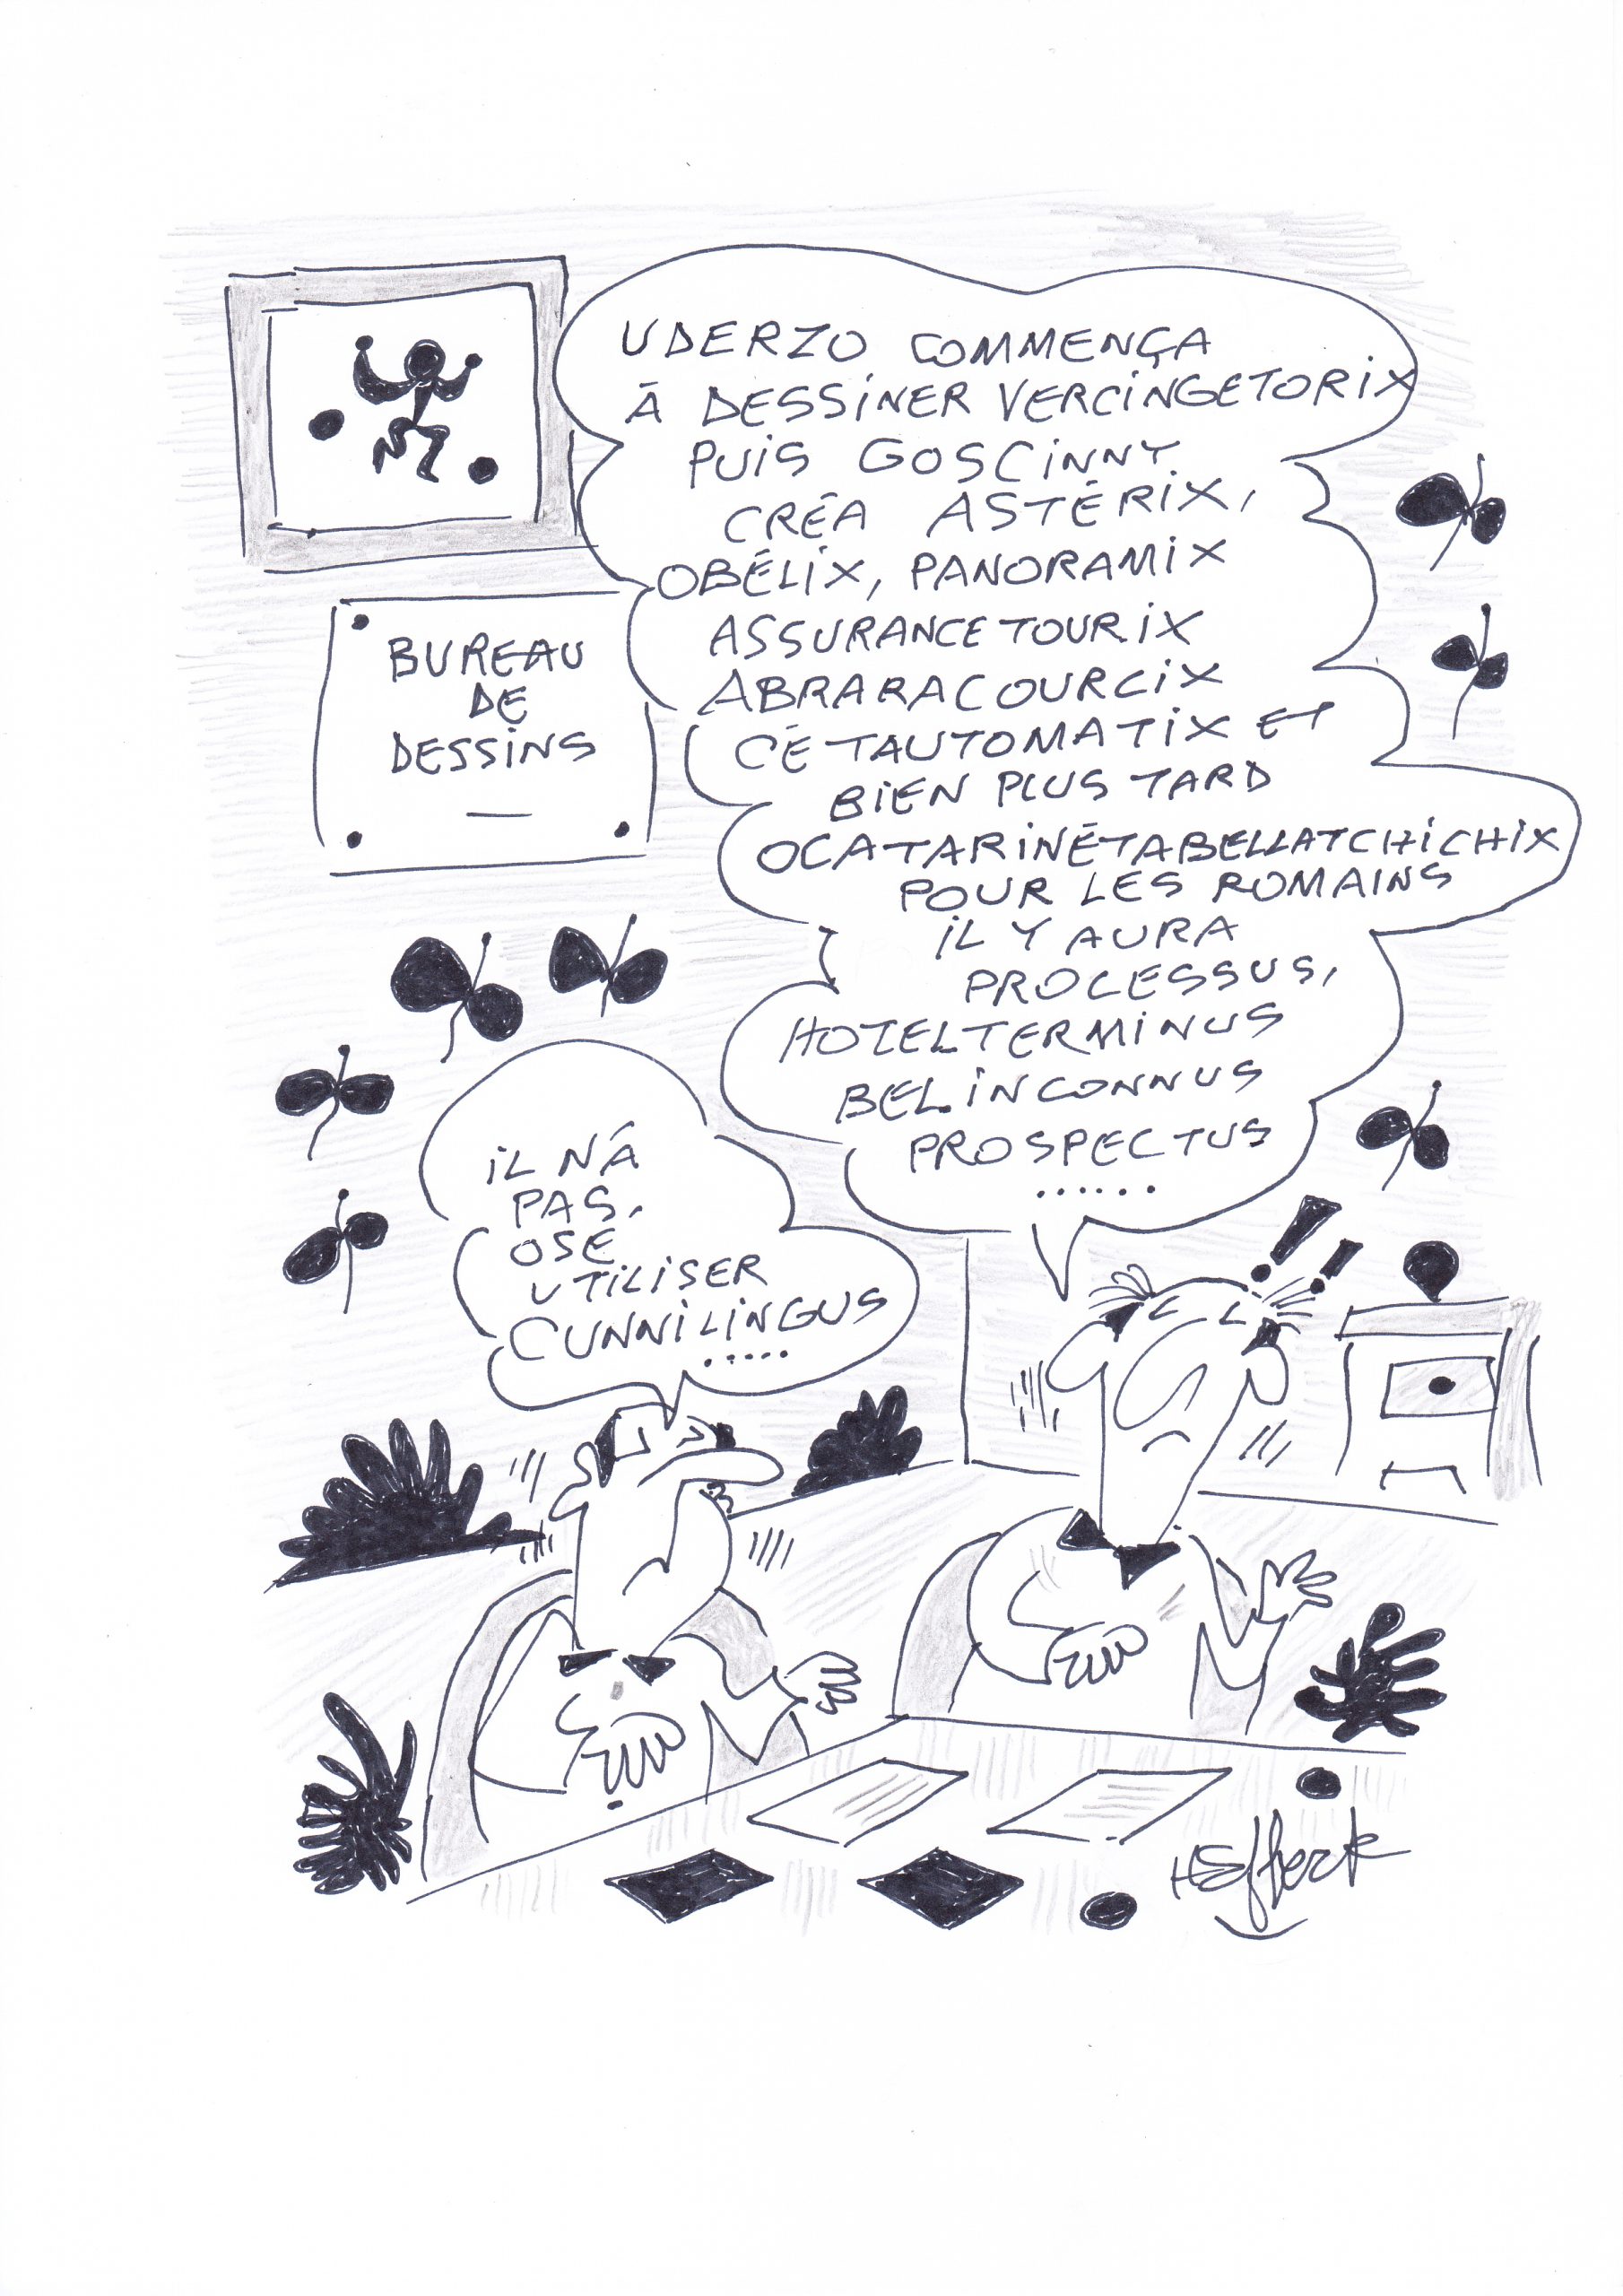 UDERZO COMMENÇA
À DESSINER VERCINGETORIX
PUIS GOSCINNY
CRÉA ASTÉRIX,
OBÉLIX, PANORAMIX
ASSURANCETOURIX
ABRARACOURCIX
CÉTAUTOMATIX ET
BIEN PLUS TARD
OCATARINÉTABELLATCHICHIX
POUR LES ROMAINS
IL Y AURA
PROCESSUS,
HOTELTERMINUS
BEL.INCONNUS
PROSPECTUS
......
BUREAU
DE
DESSINS
IL N'A
PAS,
OSÉ
UTILISER
CUNNILINGUS
.....
!!